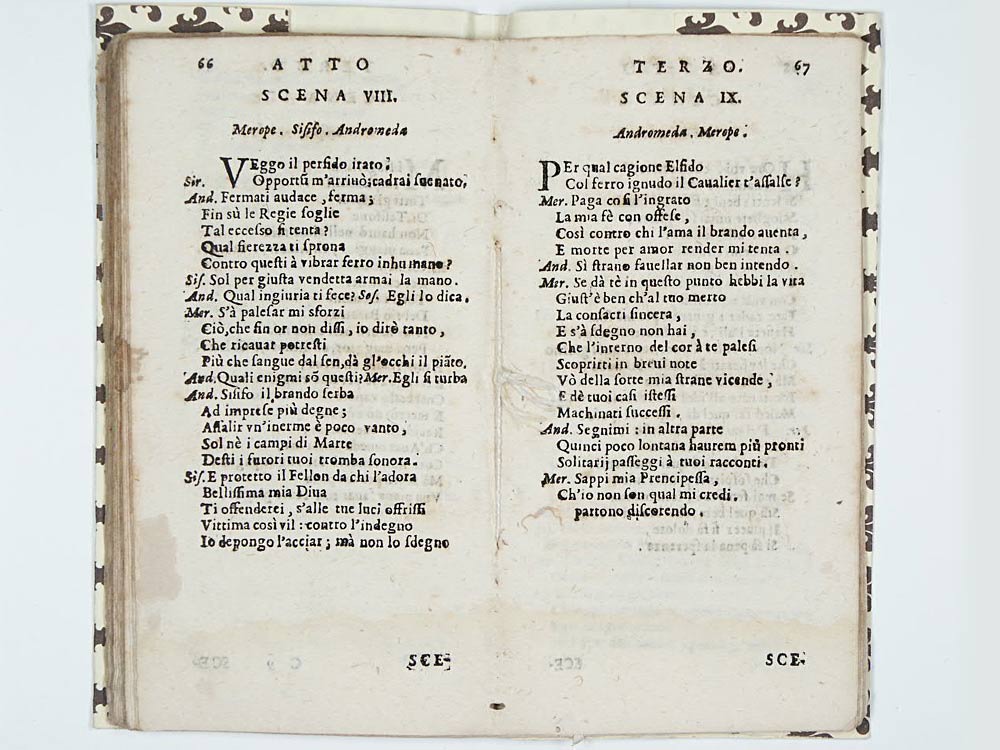 66 ATTO
SCENA VIII.
Merope. Sisifo. Andromeda
VEggo il perfido irato!
Sir. Opportũ m'arriuò; cadrai suenato,
And. Fermati audace, ferma;
Fin sù le Regie soglie
Tal eccesso si tenta?
Qual fierezza ti sprona
Contro questi à vibrar ferro inhumano?
Sis. Sol per giusta vendetta armai la mano.
And. Qual ingiuria ti fece? Sis. Egli lo dica.
Mer. S'à palesar mi sforzi
Ciò, che fin or non dissi, io dirò tanto,
Che ricauar potresti
Più che sangue dal sen, dà gl'occhi il piãto.
And. Quali enigmi sõ questi? Mer. Egli si turba
And. Sisifo il brando serba
Ad imprese più degne;
Assalir vn'inerme è poco vanto,
Sol nè i campi di Marte
Desti i furori tuoi tromba sonora.
Sis. E protetto il Fellon da chi l'adora
Bellissima mia Diua
Ti offenderei, s'alle tue luci offrissi
Vittima così vil: contro l'indegno
Io depongo l'acciar; mà non lo sdegno
SCE-
TERZO. 67
SCENA IX.
Andromeda. Merope.
PEr qual cagione Elfido
Col ferro ignudo il Caualier t'assalse?
Mer. Paga così l'ingrato
La mia fè con offese,
Così contro chi l'ama il brando auenta,
E morte per amor render mi tenta.
And. Sì strano fauellar non ben intendo.
Mer. Se dà tè in questo punto hebbi la vita
Giust'è ben ch'al tuo merto
La consacri sincera,
E s'à sdegno non hai,
Che l'interno del cor à te palesi
Scoprirti in breui note
Vò della sorte mia strane vicende,
E dè tuoi casi istessi
Machinati successi.
And. Segnimi: in altra parte
Quinci poco lontana haurem più pronti
Solitarij passeggi à tuoi racconti.
Mer. Sappi mia Prencipessa,
Ch'io non son qual mi credi.
partono discorendo.
SCE-